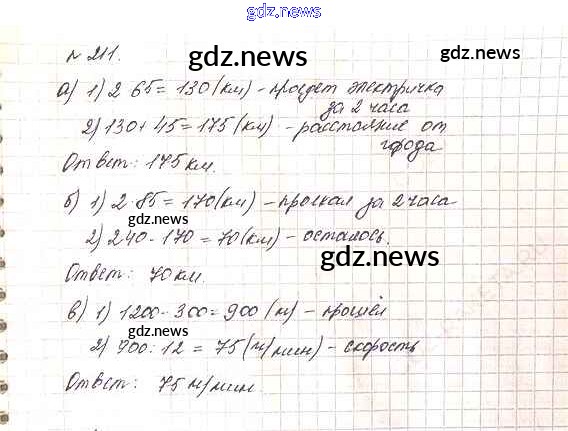 gdz.news
№ 211.
gdz.news
а) 1) 2 65 = 130 (км) - проедет электричка
за 2 часа
2) 130 + 45 = 175 (км) - расстояние от
города
Ответ: 175 км.
б) 1) 2·85 = 170 (км) - проехал за 2 часа
gdz.news
2) 240 - 170 = 70 (км) - осталось.
gdz.news
Ответ: 70 км.
в) 1) 1200 - 300 = 900 (м) - прошёл
gdz.news
2) 900 : 12 = 75 (м/мин) - скорость
Ответ: 75 м/мин.